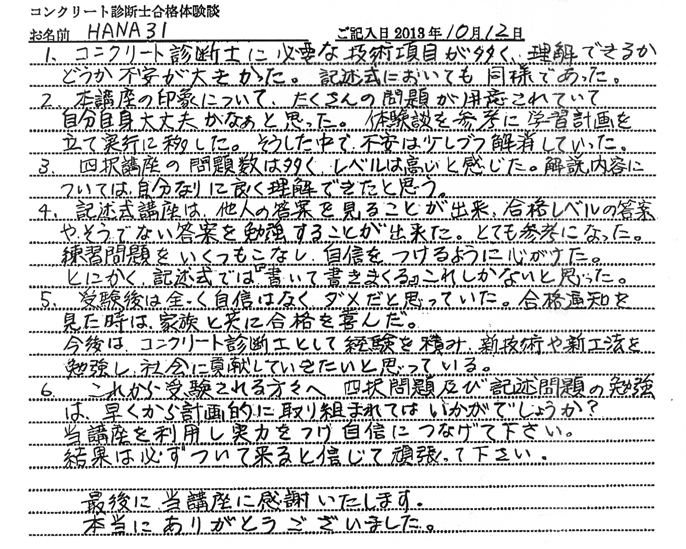 コンクリート診断士合格体験談
お名前 HANA31 ご記入日2013年10月12日
1. コンクリート診断士に必要な技術項目が多く、理解できるか
どうか不安が大きかった。記述式においても同様であった。
2. 本講座の印象について、たくさんの問題が用意されていて
自分自身大丈夫かなぁと思った。体験談を参考に学習計画を
立て実行に移した。そうした中で、不安は少しづつ解消していった。
3. 四択講座の問題数は多く、レベルは高いと感じた。解説内容に
ついては、自分なりに良く理解できたと思う。
4. 記述式講座は、他人の答案を見ることが出来、合格レベルの答案
や、そうでない答案を勉強することが出来た。とても参考になった。
練習問題をいくつもこなし、自信をつけるように心がけた。
とにかく、記述式では『書いて書きまくる』これしかないと思った。
5. 受験後は全く自信はなく、ダメだと思っていた。合格通知を
見た時は、家族と共に合格を喜んだ。
今後は、コンクリート診断士として経験を積み、新技術や新工法を
勉強し、社会に貢献していきたいと思っている。
6. これから受験される方々へ 四択問題及び記述問題の勉強
は、早くから計画的に取り組まれてはいかがでしょうか?
当講座を利用し実力をつけ自信につなげて下さい。
結果は必ずついて来ると信じて頑張って下さい。
最後に当講座に感謝いたします。
本当にありがとうございました。